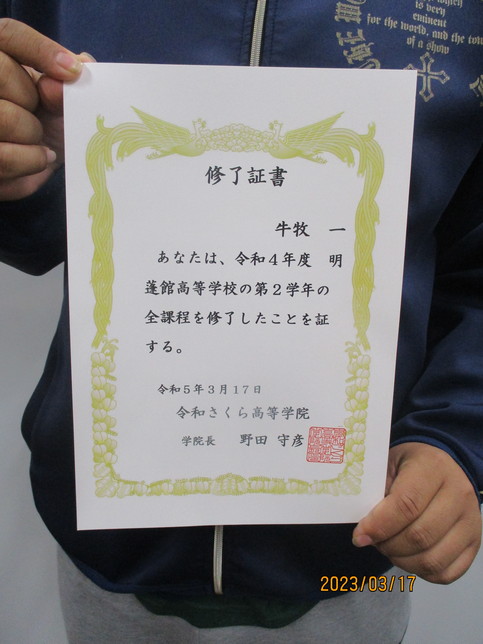 is very
eminent
for the world, and the tow
of a show
修了証書
牛牧　一
あなたは、令和４年度　明
蓬館高等学校の第２学年の
全課程を修了したことを証
する。
令和５年３月１７日
令和さくら高等学院
学院長　野田 守彦
2023/03/17